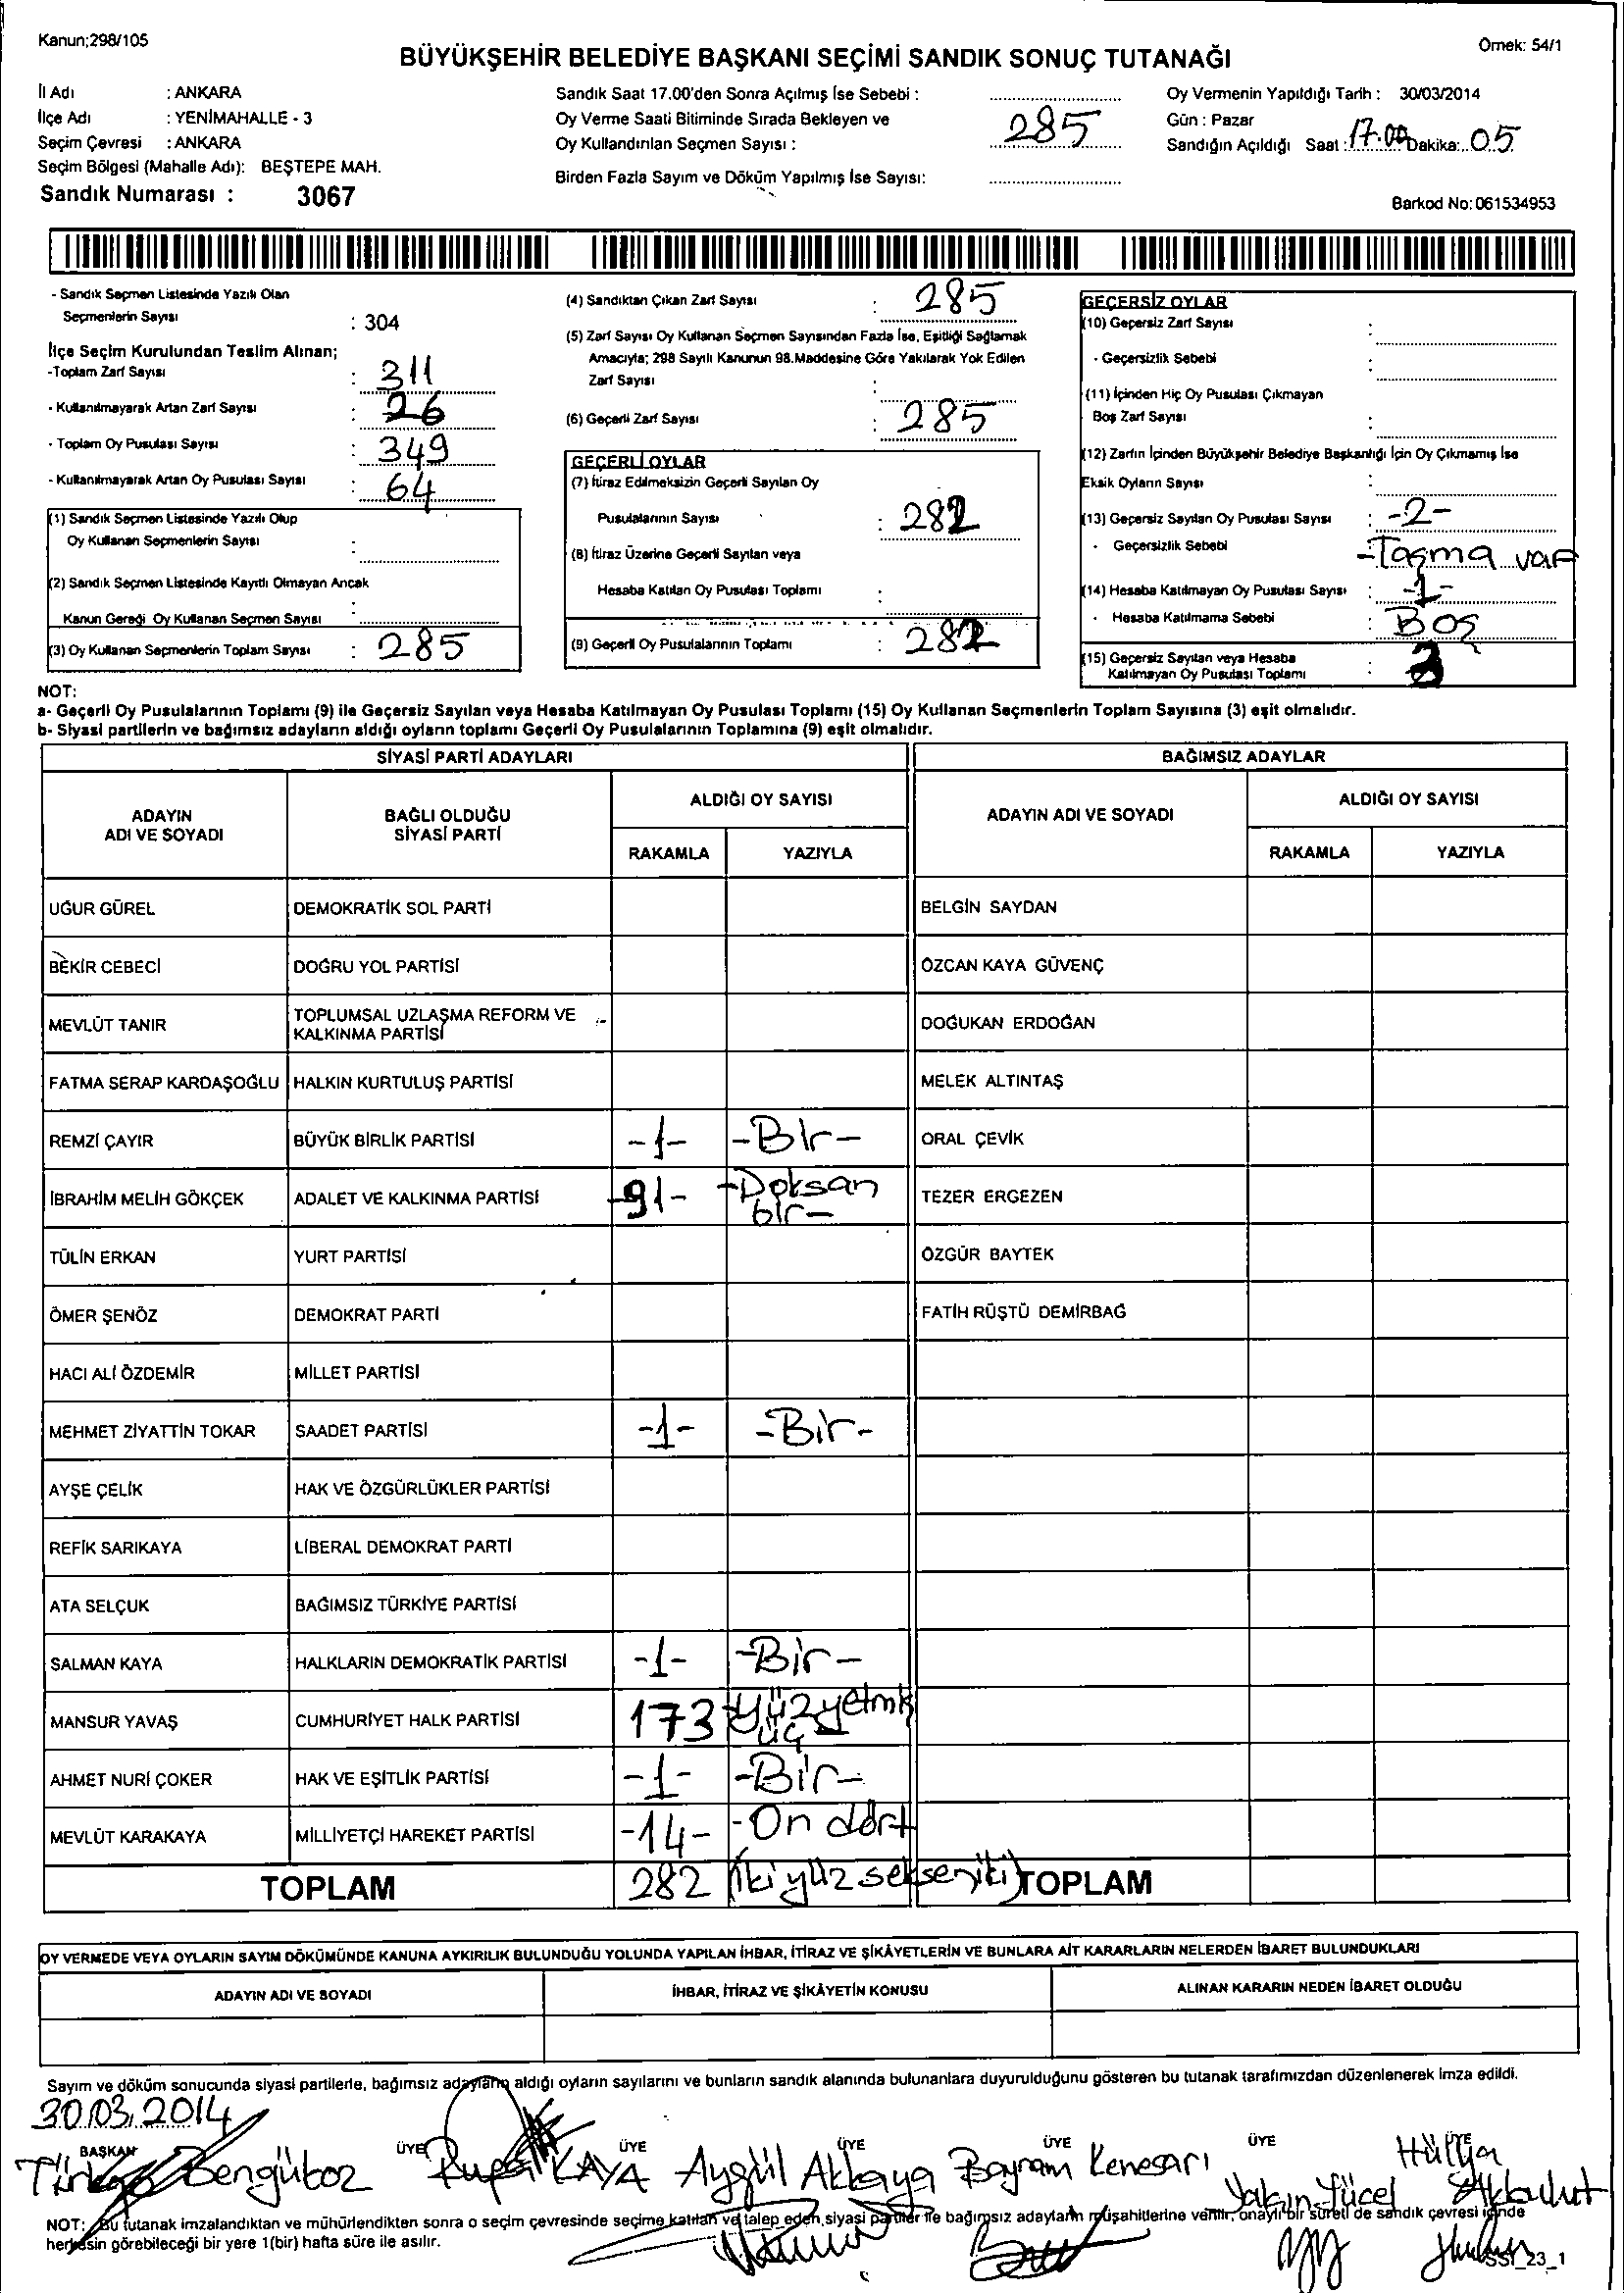 Kanun;298/105
Örnek: 54/1
BÜYÜKŞEHİR BELEDİYE BAŞKANI SEÇİMİ SANDIK SONUÇ TUTANAĞI
İl Adı : ANKARA
İlçe Adı : YENİMAHALLE - 3
Seçim Çevresi : ANKARA
Seçim Bölgesi (Mahalle Adı): BEŞTEPE MAH.
Sandık Numarası : 3067
Sandık Saat 17.00'den Sonra Açılmış İse Sebebi :
Oy Verme Saati Bitiminde Sırada Bekleyen ve
Oy Kullandırılan Seçmen Sayısı : 285
Birden Fazla Sayım ve Döküm Yapılmış İse Sayısı:
Oy Vermenin Yapıldığı Tarih : 30/03/2014
Gün : Pazar
Sandığın Açıldığı Saat : 17.00 Dakika: 05
Barkod No: 061534953
- Sandık Seçmen Listesinde Yazılı Olan
Seçmenlerin Sayısı : 304
İlçe Seçim Kurulundan Teslim Alınan;
-Toplam Zarf Sayısı : 311
- Kullanılmayarak Artan Zarf Sayısı : 26
- Toplam Oy Pusulası Sayısı : 349
- Kullanılmayarak Artan Oy Pusulası Sayısı : 64
(1) Sandık Seçmen Listesinde Yazılı Olup
Oy Kullanan Seçmenlerin Sayısı :
(2) Sandık Seçmen Listesinde Kayıtlı Olmayan Ancak
Kanun Gereği Oy Kullanan Seçmen Sayısı :
(3) Oy Kullanan Seçmenlerin Toplam Sayısı : 285
(4) Sandıktan Çıkan Zarf Sayısı : 285
(5) Zarf Sayısı Oy Kullanan Seçmen Sayısından Fazla İse, Eşitliği Sağlamak
Amacıyla; 298 Sayılı Kanunun 98.Maddesine Göre Yakılarak Yok Edilen
Zarf Sayısı :
(6) Geçerli Zarf Sayısı : 285
GEÇERLİ OYLAR
(7) İtiraz Edilmeksizin Geçerli Sayılan Oy
Pusulalarının Sayısı : 282
(8) İtiraz Üzerine Geçerli Sayılan veya
Hesaba Katılan Oy Pusulası Toplamı :
(9) Geçerli Oy Pusulalarının Toplamı : 282
GEÇERSİZ OYLAR
(10) Geçersiz Zarf Sayısı :
- Geçersizlik Sebebi :
(11) İçinden Hiç Oy Pusulası Çıkmayan
Boş Zarf Sayısı :
(12) Zarfın İçinden Büyükşehir Belediye Başkanlığı İçin Oy Çıkmamış İse
Eksik Oyların Sayısı :
(13) Geçersiz Sayılan Oy Pusulası Sayısı : -2-
- Geçersizlik Sebebi -Taşma var
(14) Hesaba Katılmayan Oy Pusulası Sayısı : -1-
- Hesaba Katılmama Sebebi : Boş
(15) Geçersiz Sayılan veya Hesaba
Katılmayan Oy Pusulası Toplamı : 3
NOT:
a- Geçerli Oy Pusulalarının Toplamı (9) ile Geçersiz Sayılan veya Hesaba Katılmayan Oy Pusulası Toplamı (15) Oy Kullanan Seçmenlerin Toplam Sayısına (3) eşit olmalıdır.
b- Siyasi partilerin ve bağımsız adayların aldığı oyların toplamı Geçerli Oy Pusulalarının Toplamına (9) eşit olmalıdır.
SİYASİ PARTİ ADAYLARI BAĞIMSIZ ADAYLAR
ADAYIN ADI VE SOYADI BAĞLI OLDUĞU SİYASİ PARTİ ALDIĞI OY SAYISI ADAYIN ADI VE SOYADI ALDIĞI OY SAYISI
RAKAMLA YAZIYLA RAKAMLA YAZIYLA
UĞUR GÜREL DEMOKRATİK SOL PARTİ BELGİN SAYDAN
BEKİR CEBECİ DOĞRU YOL PARTİSİ ÖZCAN KAYA GÜVENÇ
MEVLÜT TANIR TOPLUMSAL UZLAŞMA REFORM VE KALKINMA PARTİSİ DOĞUKAN ERDOĞAN
FATMA SERAP KARDAŞOĞLU HALKIN KURTULUŞ PARTİSİ MELEK ALTINTAŞ
REMZİ ÇAYIR BÜYÜK BİRLİK PARTİSİ -1- -Bir- ORAL ÇEVİK
İBRAHİM MELİH GÖKÇEK ADALET VE KALKINMA PARTİSİ -91- -Doksan bir- TEZER ERGEZEN
TÜLİN ERKAN YURT PARTİSİ ÖZGÜR BAYTEK
ÖMER ŞENÖZ DEMOKRAT PARTİ FATİH RÜŞTÜ DEMİRBAĞ
HACI ALİ ÖZDEMİR MİLLET PARTİSİ
MEHMET ZİYATTİN TOKAR SAADET PARTİSİ -1- -Bir-
AYŞE ÇELİK HAK VE ÖZGÜRLÜKLER PARTİSİ
REFİK SARIKAYA LİBERAL DEMOKRAT PARTİ
ATA SELÇUK BAĞIMSIZ TÜRKİYE PARTİSİ
SALMAN KAYA HALKLARIN DEMOKRATİK PARTİSİ -1- -Bir-
MANSUR YAVAŞ CUMHURİYET HALK PARTİSİ 173 -Yüzyetmiş üç-
AHMET NURİ ÇOKER HAK VE EŞİTLİK PARTİSİ -1- -Bir-
MEVLÜT KARAKAYA MİLLİYETÇİ HAREKET PARTİSİ -14- -On dört
TOPLAM 282 (İkiyüz sekseniki) TOPLAM
OY VERMEDE VEYA OYLARIN SAYIM DÖKÜMÜNDE KANUNA AYKIRILIK BULUNDUĞU YOLUNDA YAPILAN İHBAR, İTİRAZ VE ŞİKÂYETLERİN VE BUNLARA AİT KARARLARIN NELERDEN İBARET BULUNDUKLARI
ADAYIN ADI VE SOYADI İHBAR, İTİRAZ VE ŞİKÂYETİN KONUSU ALINAN KARARIN NEDEN İBARET OLDUĞU
Sayım ve döküm sonucunda siyasi partilerle, bağımsız adayların aldığı oyların sayılarını ve bunların sandık alanında bulunanlara duyurulduğunu gösteren bu tutanak tarafımızdan düzenlenerek imza edildi.
30.03.2014
BAŞKAN ÜYE ÜYE ÜYE ÜYE ÜYE ÜYE
Bengüboz KAYA Aygül Akkaya Bayram Kenesarı Yalçın Yücel Hülya Akbulut
NOT: Bu tutanak imzalandıktan ve mühürlendikten sonra o seçim çevresinde seçime katılan ve talep eden siyasi partiler ile bağımsız adayların müşahitlerine verilir, onaylı bir sureti de sandık çevresi içinde
herkesin görebileceği bir yere 1(bir) hafta süre ile asılır.
SST_23_1